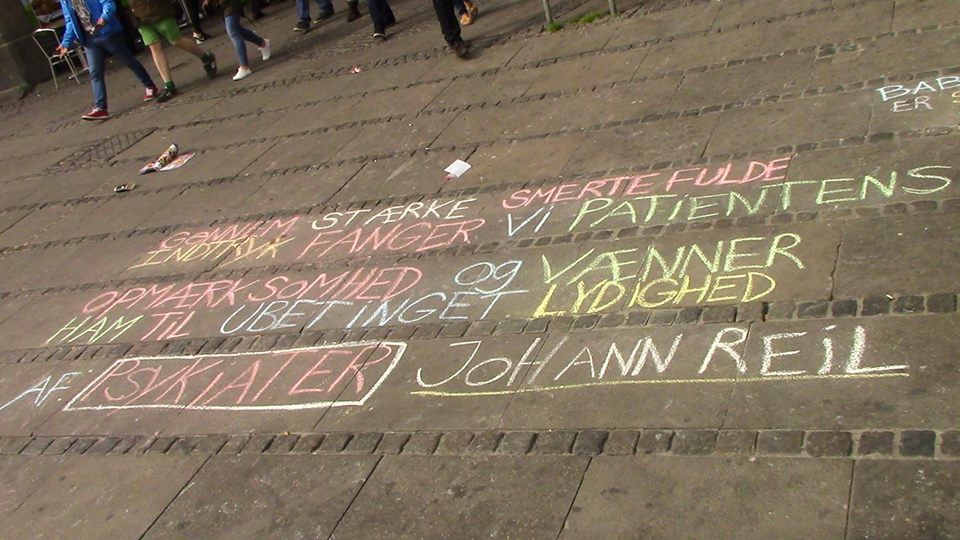 GENNEM STÆRKE SMERTEFULDE
INDTRYK FANGER VI PATIENTENS
OPMÆRKSOMHED OG VÆNNER
HAM TIL UBETINGET LYDIGHED
AF PSYKIATER JOHANN REIL
BAB
ER S